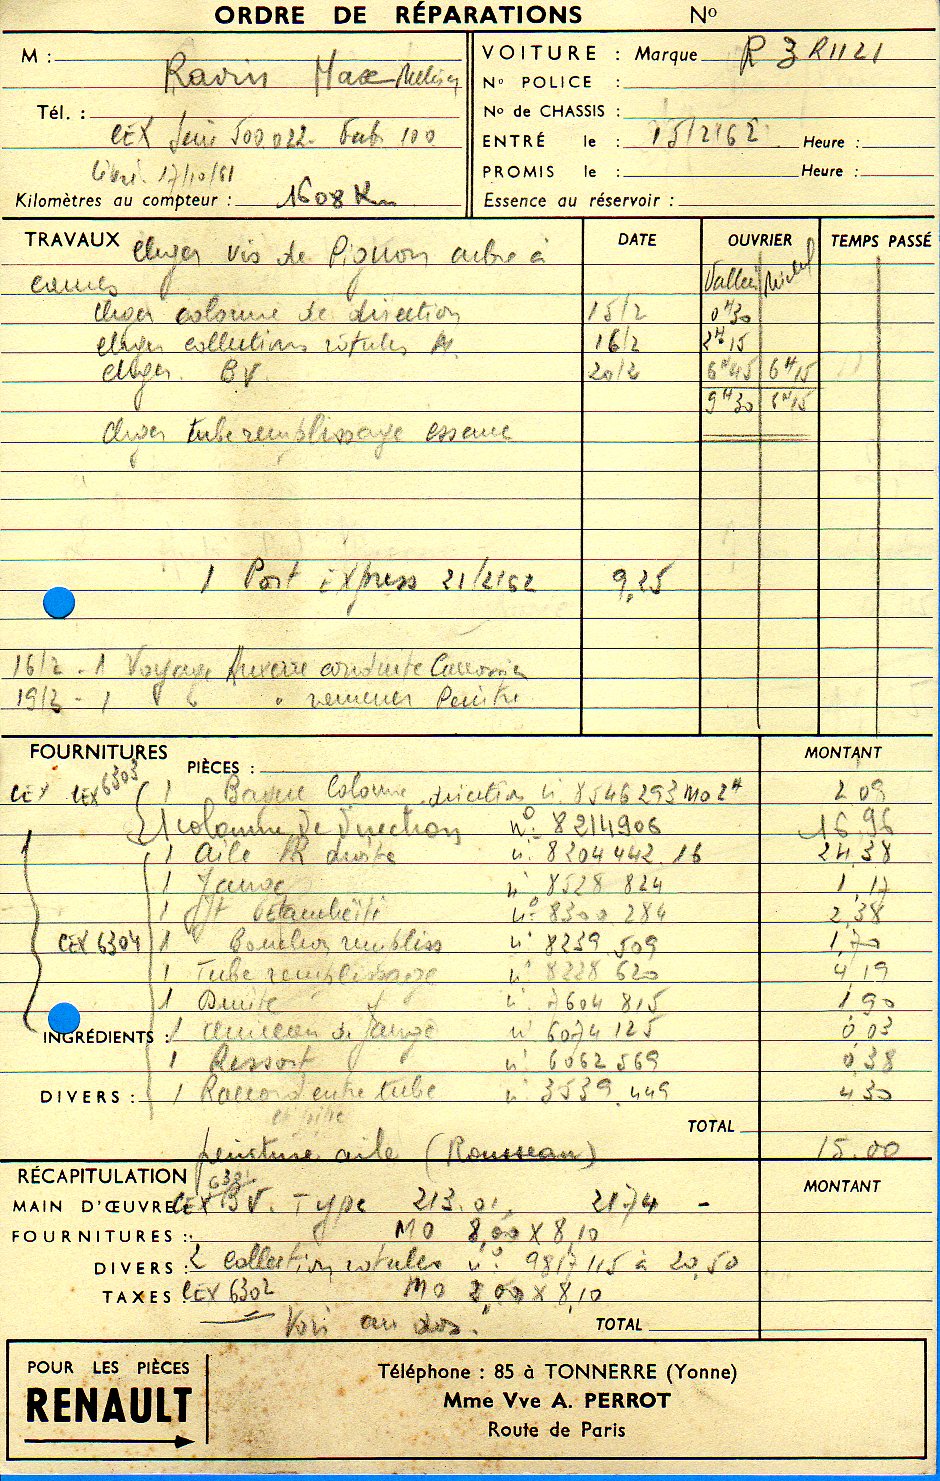 ORDRE DE RÉPARATIONS No
M : Ravin Max
VOITURE : Marque R 3 R1121
No POLICE :
Tél. :
No de CHASSIS :
CEX Série 500022. Fab 100
ENTRÉ le : 15/2/62 Heure :
livré. 17/10/61
PROMIS le : Heure :
Kilomètres au compteur : 1608 Km
Essence au réservoir :
TRAVAUX DATE OUVRIER TEMPS PASSÉ
chger vis de Pignon arbre à
cames
Vallee Michel
chger colonne de direction 15/2 0H30
chger collections rotules AV. 16/2 2H15
chger. BV. 20/2 6H45 6H15
9H30 6H15
chger tube remplissage essence
1 Port Express 21/2/62 9,25
16/2 - 1 Voyage Auxerre conduite Carrossier
19/2 - 1 " " ramener Peintre
FOURNITURES PIÈCES : MONTANT
CEX CEX 6303 1 Bague Colonne direction n. 8546293 MO 2H 2 09
1 colonne de direction no. 8214906 16,96
1 aile AR droite n. 8204442.16 24,38
1 Jauge n. 8528 824 1,17
1 Jt étanchéité no. 8300 284 2,38
CEX 6304 1 Bouchon rempliss n. 8239 509 1,70
1 Tube remplissage n. 8228 620 4,19
1 Durite n. 7604 815 1,90
INGRÉDIENTS : 1 anneau de jauge n. 6074 125 0,03
1 Ressort n. 6062 569 0,38
DIVERS : 1 Raccord entre tube n. 3539.449 4,30
TOTAL
peinture aile (Rousseau) 15.00
RÉCAPITULATION MONTANT
MAIN D'ŒUVRE CEX BV. Type 213.01. 2174 -
FOURNITURES : MO 8,00 X 8,10
DIVERS : 2 collection rotules no. 9817 115 à 20,50
TAXES : CEX 6302 MO 2,00 X 8,10
Voir au dos. TOTAL
POUR LES PIÈCES
RENAULT
Téléphone : 85 à TONNERRE (Yonne)
Mme Vve A. PERROT
Route de Paris